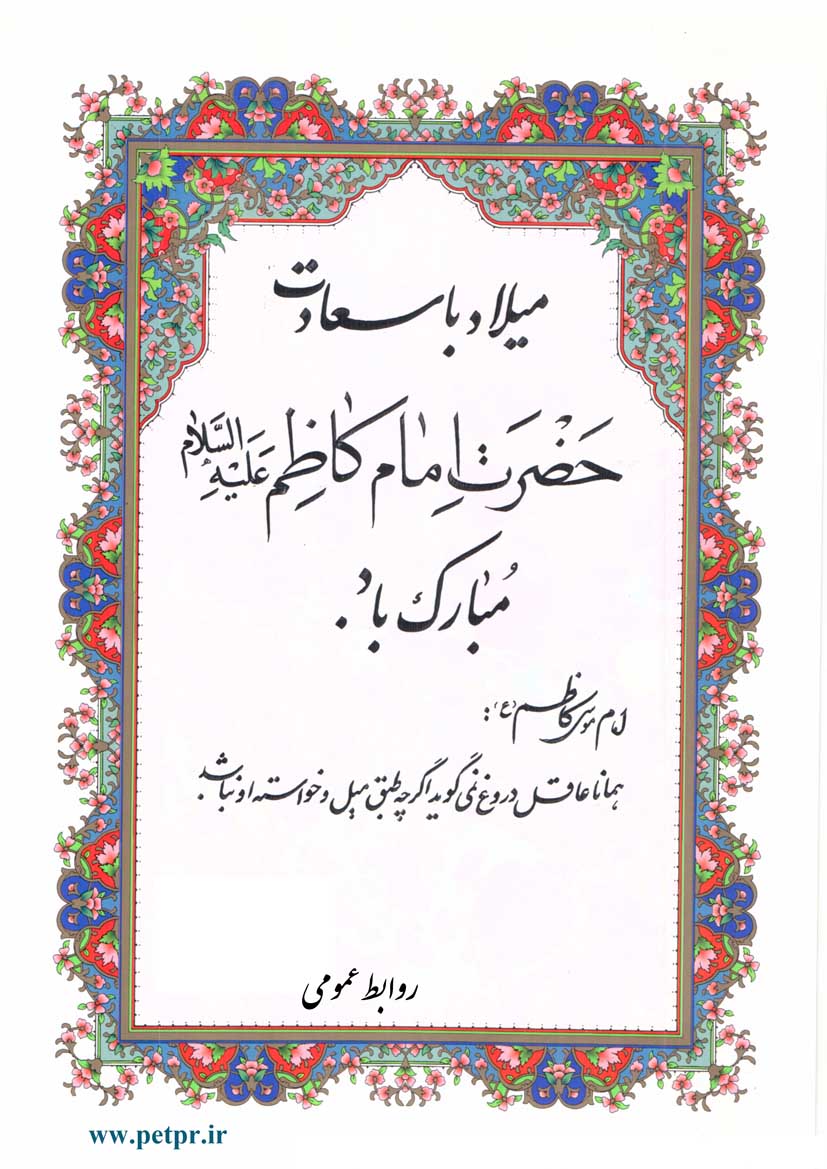 میلاد باسعادت
حَضْرَت اِمام کاظِم عَلَیْهِ السَّلام
مُبارک باد.
امام موسی کاظم (ع):
همانا عاقل دروغ نمی گوید اگرچه طبق میل و خواسته او نباشد.
روابط عمومی
www.petpr.ir